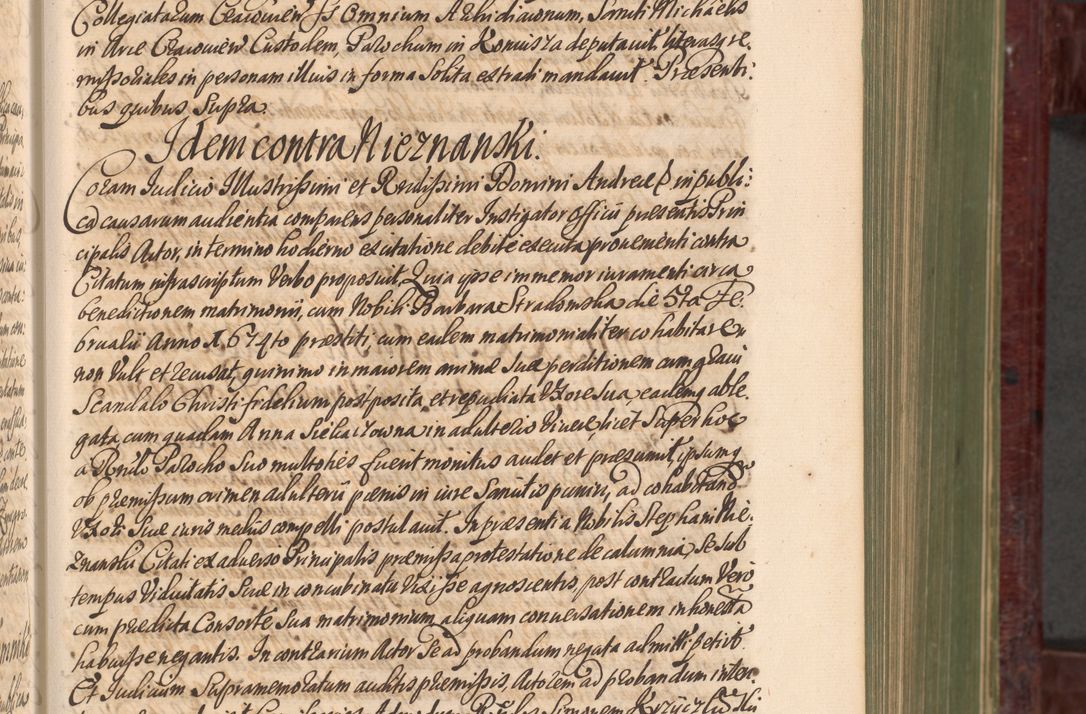 Collegiatarum Cracouien̄ SS Omnium Archidiaconum, Sancti Michaelis
in Arce Cracouien̄ Custodem, Parochum in Koniusza deputauit, literasq; re,
missoriales in personam illius in forma Solita extradi mandauit. Præsenti:
bus quibus Supra.
Idem contra Nieznanski.
Coram Iudicio Illustrissimi et Rndissimi Domini Andreæ in publi:
ca causarum audientia comparens personaliter Instigator Officii præsentis Prin
cipalis Actor, in termino hodierno ex citatione debite executa prouementi contra
Citatum infrascriptum Verbo proposuit, Quia ipse immemor iuramenti circa
benedictionem matrimonii, cum Nobili Barbara Stradomska die 5ta Fe.
bruarii Anno 1674to præstiti, cum eadem matrimonialiter cohabitare
non Vult et recusat, quinimo in maiorem animæ Suæ perditionem cum graui
Scandalo Christi fidelium postposita et repudiata Vxore Sua, eademq able.
gata, cum quadam Anna in adulterio Viuere, licet Super hoc
a Rndo Parocho Suo multoties fuerit monitus audet et præsumit, ipsumq
ob præmissum crimen adulterii pœnis in iure Sancitis puniri, ad cohabitand
Vxori Suæ iuris mediis compelli postulauit. In præsentia Nobilis Stephani Nie.
znanski Citati ex aduerso Principalis præmissa protestatione de calumnia, Se Sub
tempus Viduitatis Suæ in concubinatu Vixisse agnoscentis, post contractum Vero
cum prædicta Consorte Sua matrimonium aliquam conuersationem inhonesta
habuisse negantis. In contrarium Actor Se ad probandum negata admitti petiit.
Et Iudicium Supramemoratum auditis præmissis, Actorem ad probandum inten.